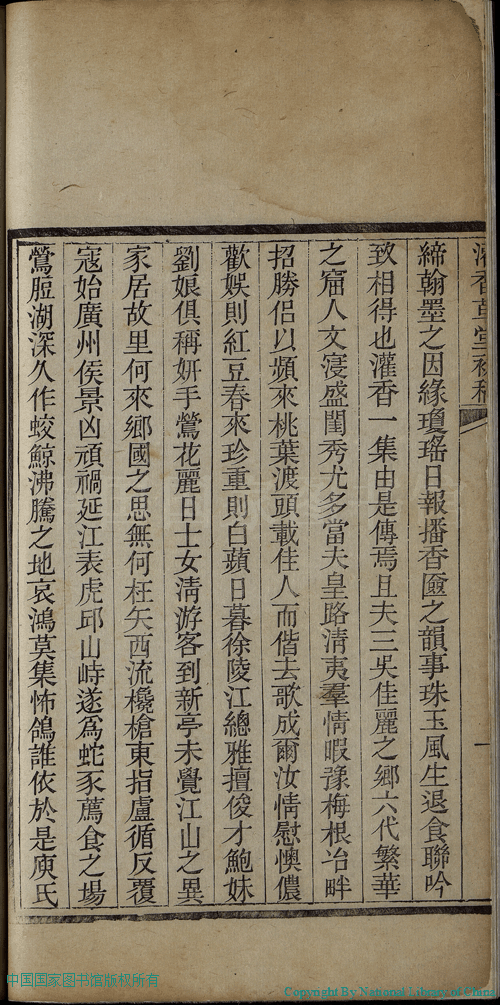 灌香草堂初稿
一
締翰墨之因緣瓊瑤日報播香匳之韻事珠玉風生退食聯吟
致相得也灌香一集由是傳焉且夫三吳佳麗之鄉六代繁華
之窟人文寖盛閨秀尤多當夫皇路清夷羣情暇豫梅根冶畔
招勝侶以頻來桃葉渡頭載佳人而偕去歌成爾汝情慰懊儂
歡娛則紅豆春來珍重則白蘋日暮徐陵江總雅擅俊才鮑妹
劉娘俱稱妍手鶯花麗日士女清游客到新亭未覺江山之異
家居故里何來鄉國之思無何枉矢西流欃槍東指盧循反覆
寇始廣州侯景凶頑禍延江表虎邱山峙遂為蛇豕薦食之場
鶯脰湖深久作蛟鯨沸騰之地哀鴻莫集怖鴿誰依於是庾氏
中国国家图书馆版权所有
Copyright By National Library of China